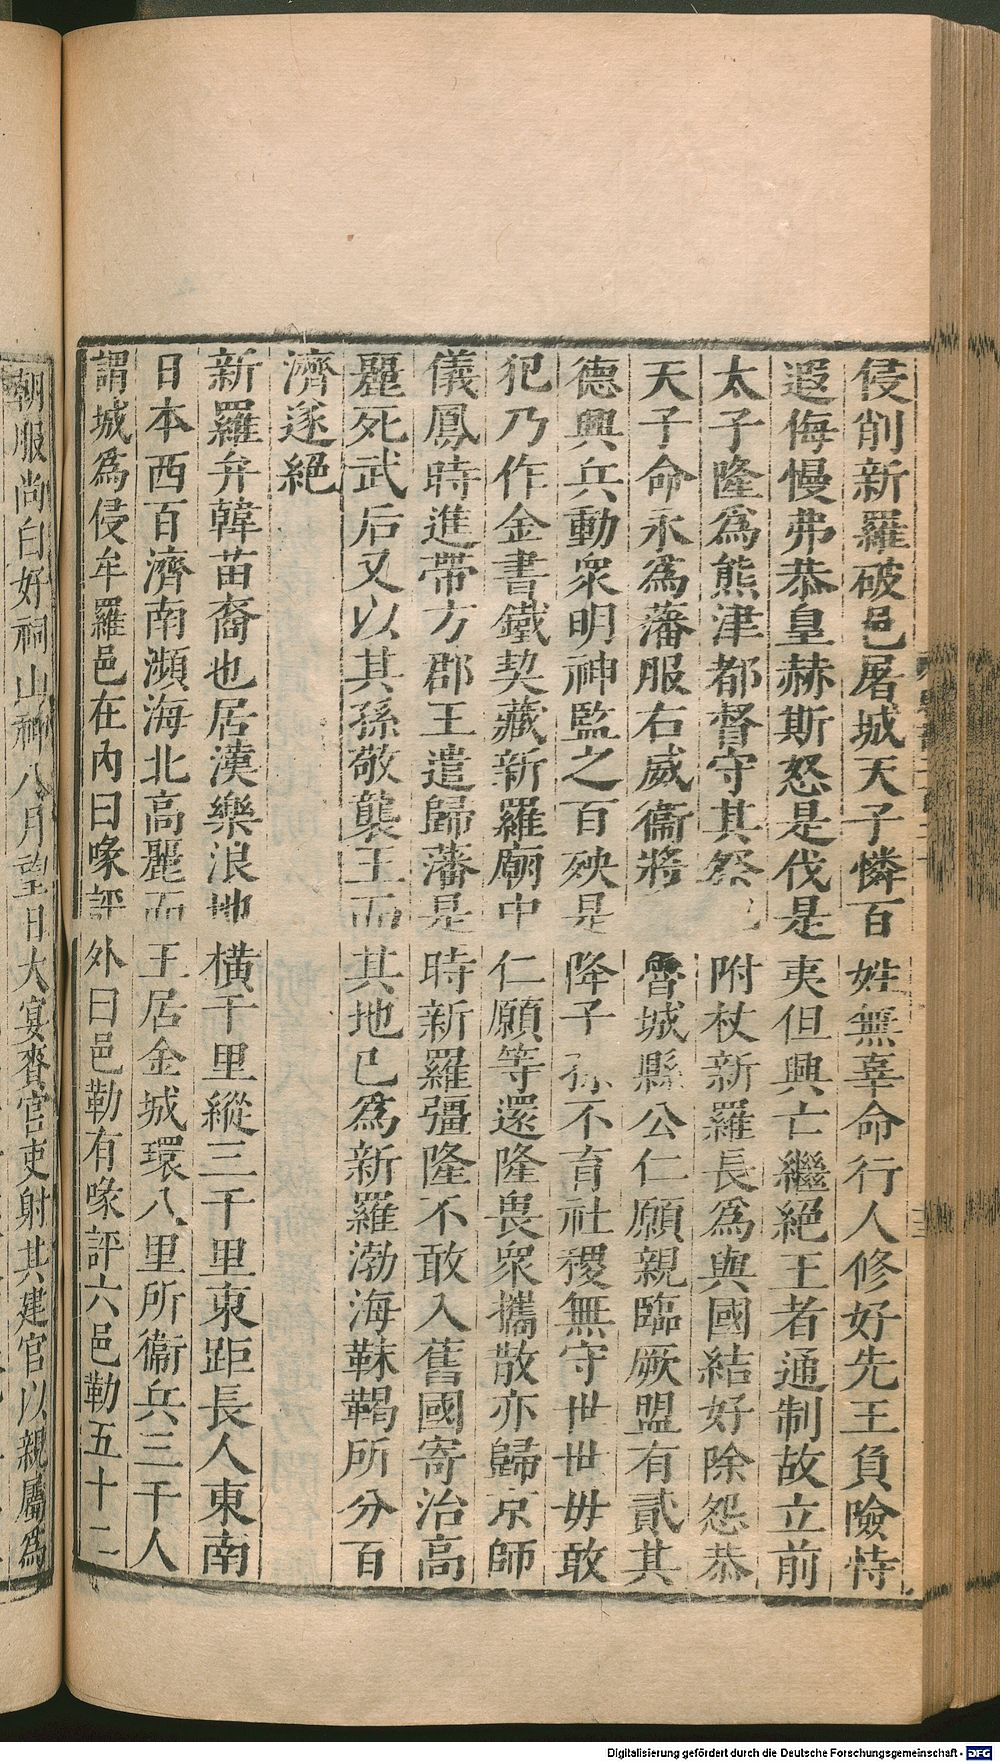 侵削新羅破邑屠城天子憐百姓無辜命行人修好先王負險恃
遐侮慢弗恭皇赫斯怒是伐是夷但興亡繼絕王者通制故立前
太子隆爲熊津都督守其祭附杖新羅長爲與國結好除怨恭
天子命永爲藩服右威衞將魯城縣公仁願親臨厥盟有貳其
德興兵動衆明神監之百殃是降子孫不育社稷無守世世毋敢
犯乃作金書鐵契藏新羅廟中仁願等還隆畏衆攜散亦歸京師
儀鳳時進帶方郡王遣歸藩是時新羅彊隆不敢入舊國寄治高
麗死武后又以其孫敬襲王而其地已爲新羅渤海靺鞨所分百
濟遂絕
新羅弁韓苗裔也居漢樂浪地橫千里縱三千里東距長人東南
日本西百濟南瀕海北高麗而王居金城環八里所衞兵三千人
謂城爲侵牟羅邑在內曰喙評外曰邑勒有喙評六邑勒五十二
朝服尚白好祠山神八月望日大宴賚官吏射其建官以親屬爲
Digitalisierung gefördert durch die Deutsche Forschungsgemeinschaft - DFG